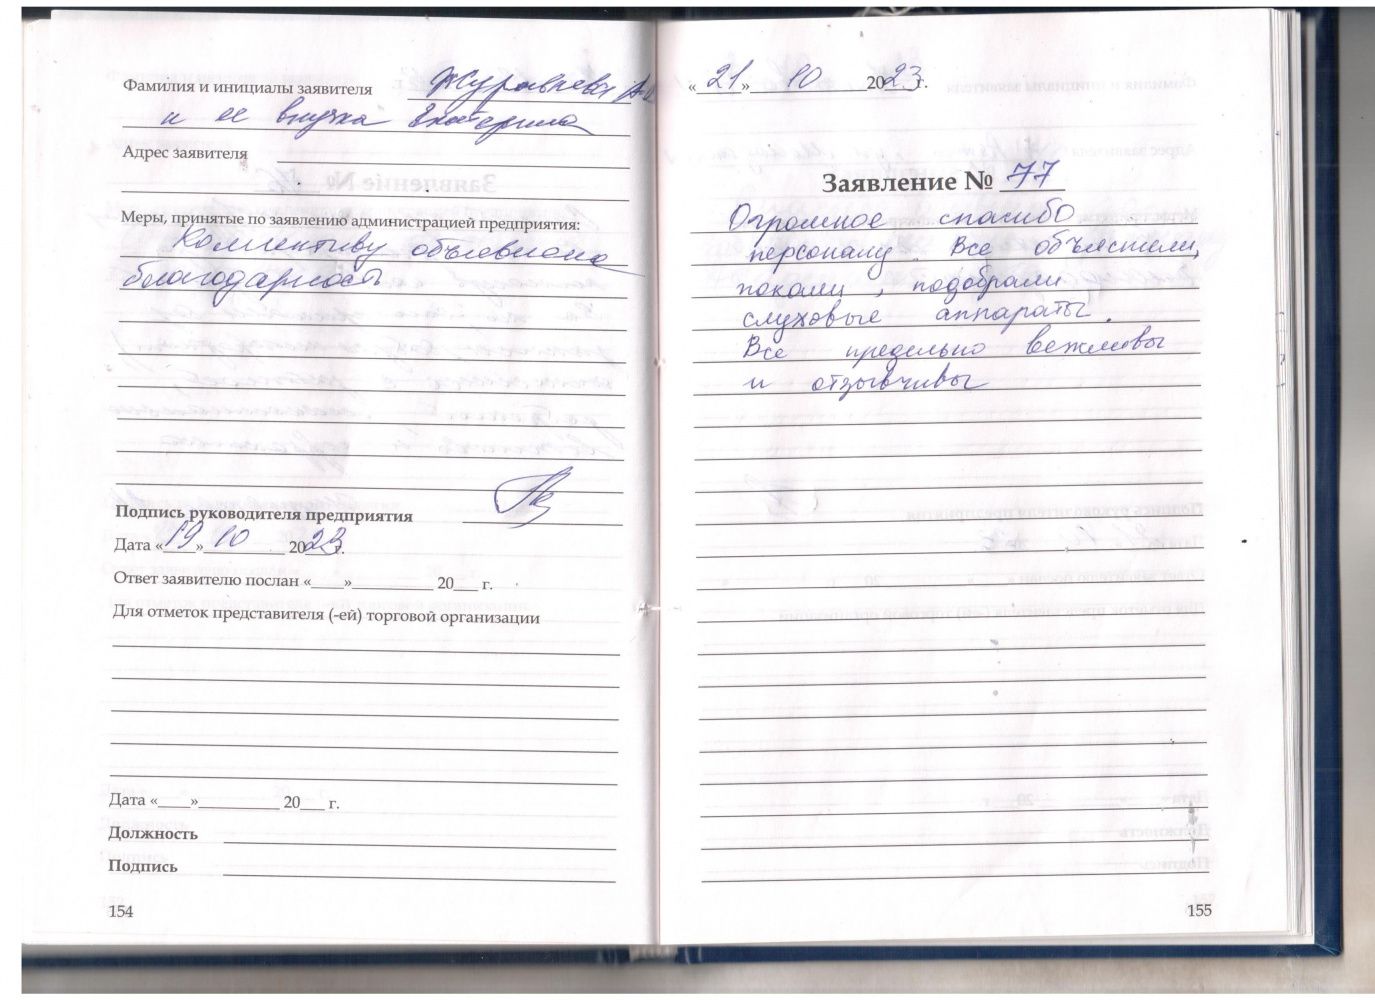 Фамилия и инициалы заявителя Журавлева
и ее внучка Екатерина
Адрес заявителя
Меры, принятые по заявлению администрацией предприятия:
Коллективу объявлена
благодарность
Подпись руководителя предприятия
Дата «19» 10 2023 г.
Ответ заявителю послан «___»_________ 20___ г.
Для отметок представителя (-ей) торговой организации
Дата «____»__________ 20___ г.
Должность
Подпись
154
«21» 10 2023 г.
Заявление № 77
Огромное спасибо
персоналу. Все объяснили,
показали, подобрали
слуховые аппараты.
Все предельно вежливы
и отзывчивы
155